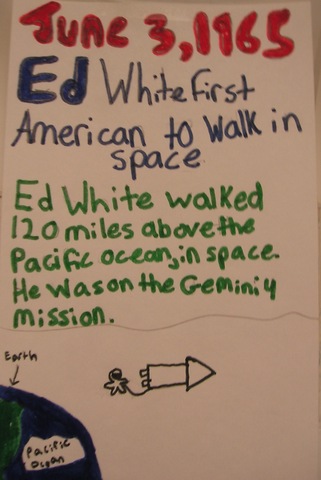 June 3, 1965
Ed White first
American to Walk in
space
Ed White walked
120 miles above the
Pacific ocean, in space.
He was on the Gemini 4
mission.
Earth
Pacific
Ocean